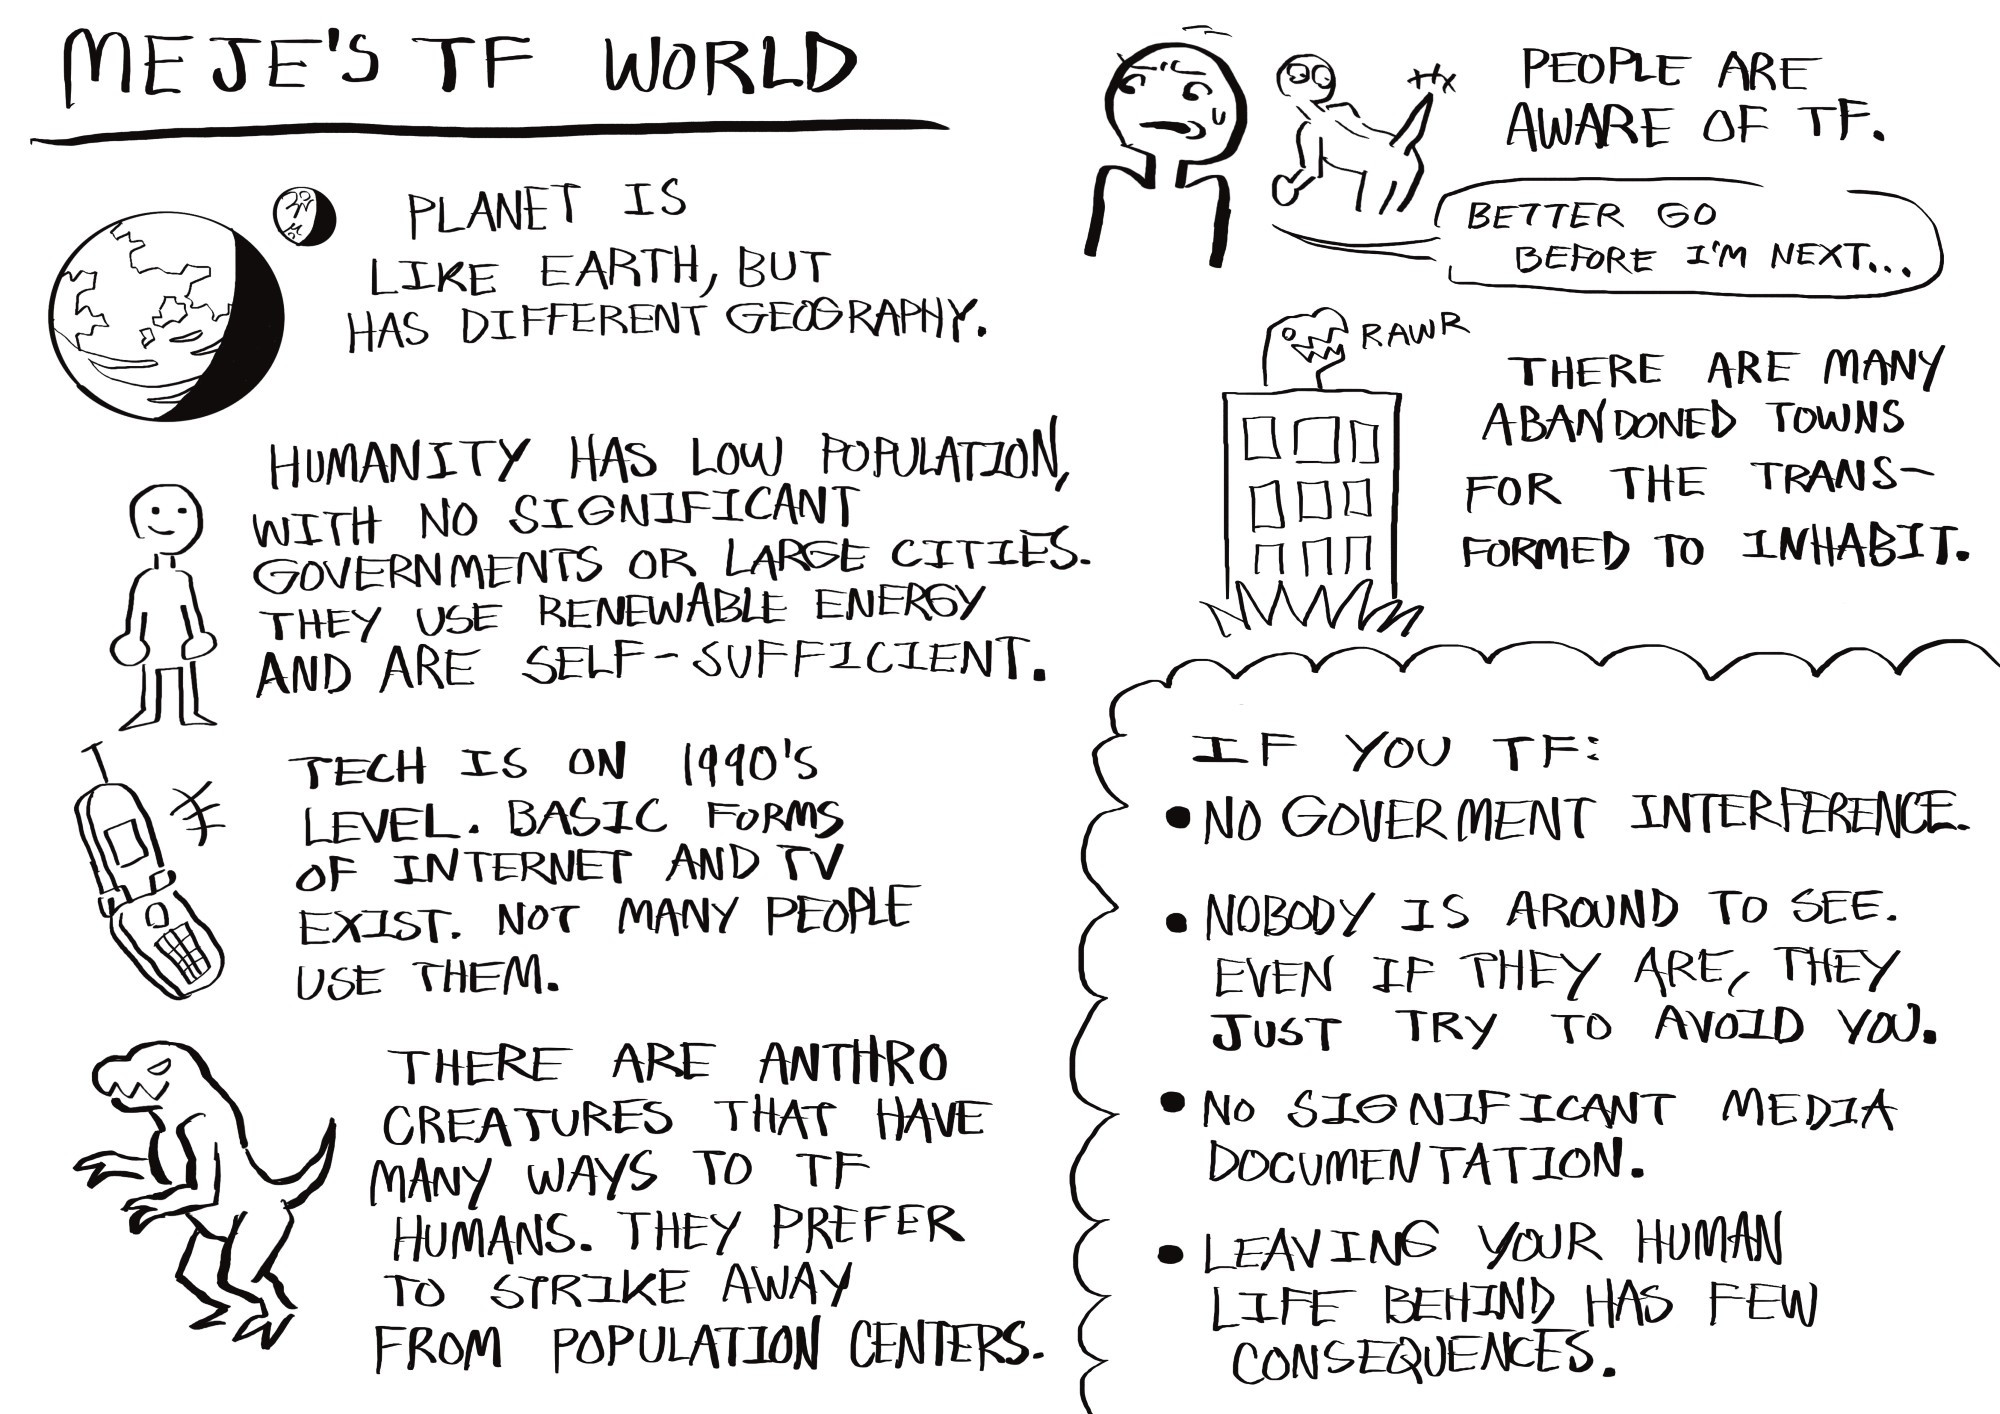 MEJE'S TF WORLD
PLANET IS
LIKE EARTH, BUT
HAS DIFFERENT GEOGRAPHY.
HUMANITY HAS LOW POPULATION,
WITH NO SIGNIFICANT
GOVERNMENTS OR LARGE CITIES.
THEY USE RENEWABLE ENERGY
AND ARE SELF-SUFFICIENT.
TECH IS ON 1990'S
LEVEL. BASIC FORMS
OF INTERNET AND TV
EXIST. NOT MANY PEOPLE
USE THEM.
THERE ARE ANTHRO
CREATURES THAT HAVE
MANY WAYS TO TF
HUMANS. THEY PREFER
TO STRIKE AWAY
FROM POPULATION CENTERS.
PEOPLE ARE
AWARE OF TF.
BETTER GO
BEFORE I'M NEXT...
RAWR
THERE ARE MANY
ABANDONED TOWNS
FOR THE TRANS-
FORMED TO INHABIT.
IF YOU TF:
• NO GOVERMENT INTERFERENCE.
• NOBODY IS AROUND TO SEE.
EVEN IF THEY ARE, THEY
JUST TRY TO AVOID YOU.
• NO SIGNIFICANT MEDIA
DOCUMENTATION.
• LEAVING YOUR HUMAN
LIFE BEHIND HAS FEW
CONSEQUENCES.